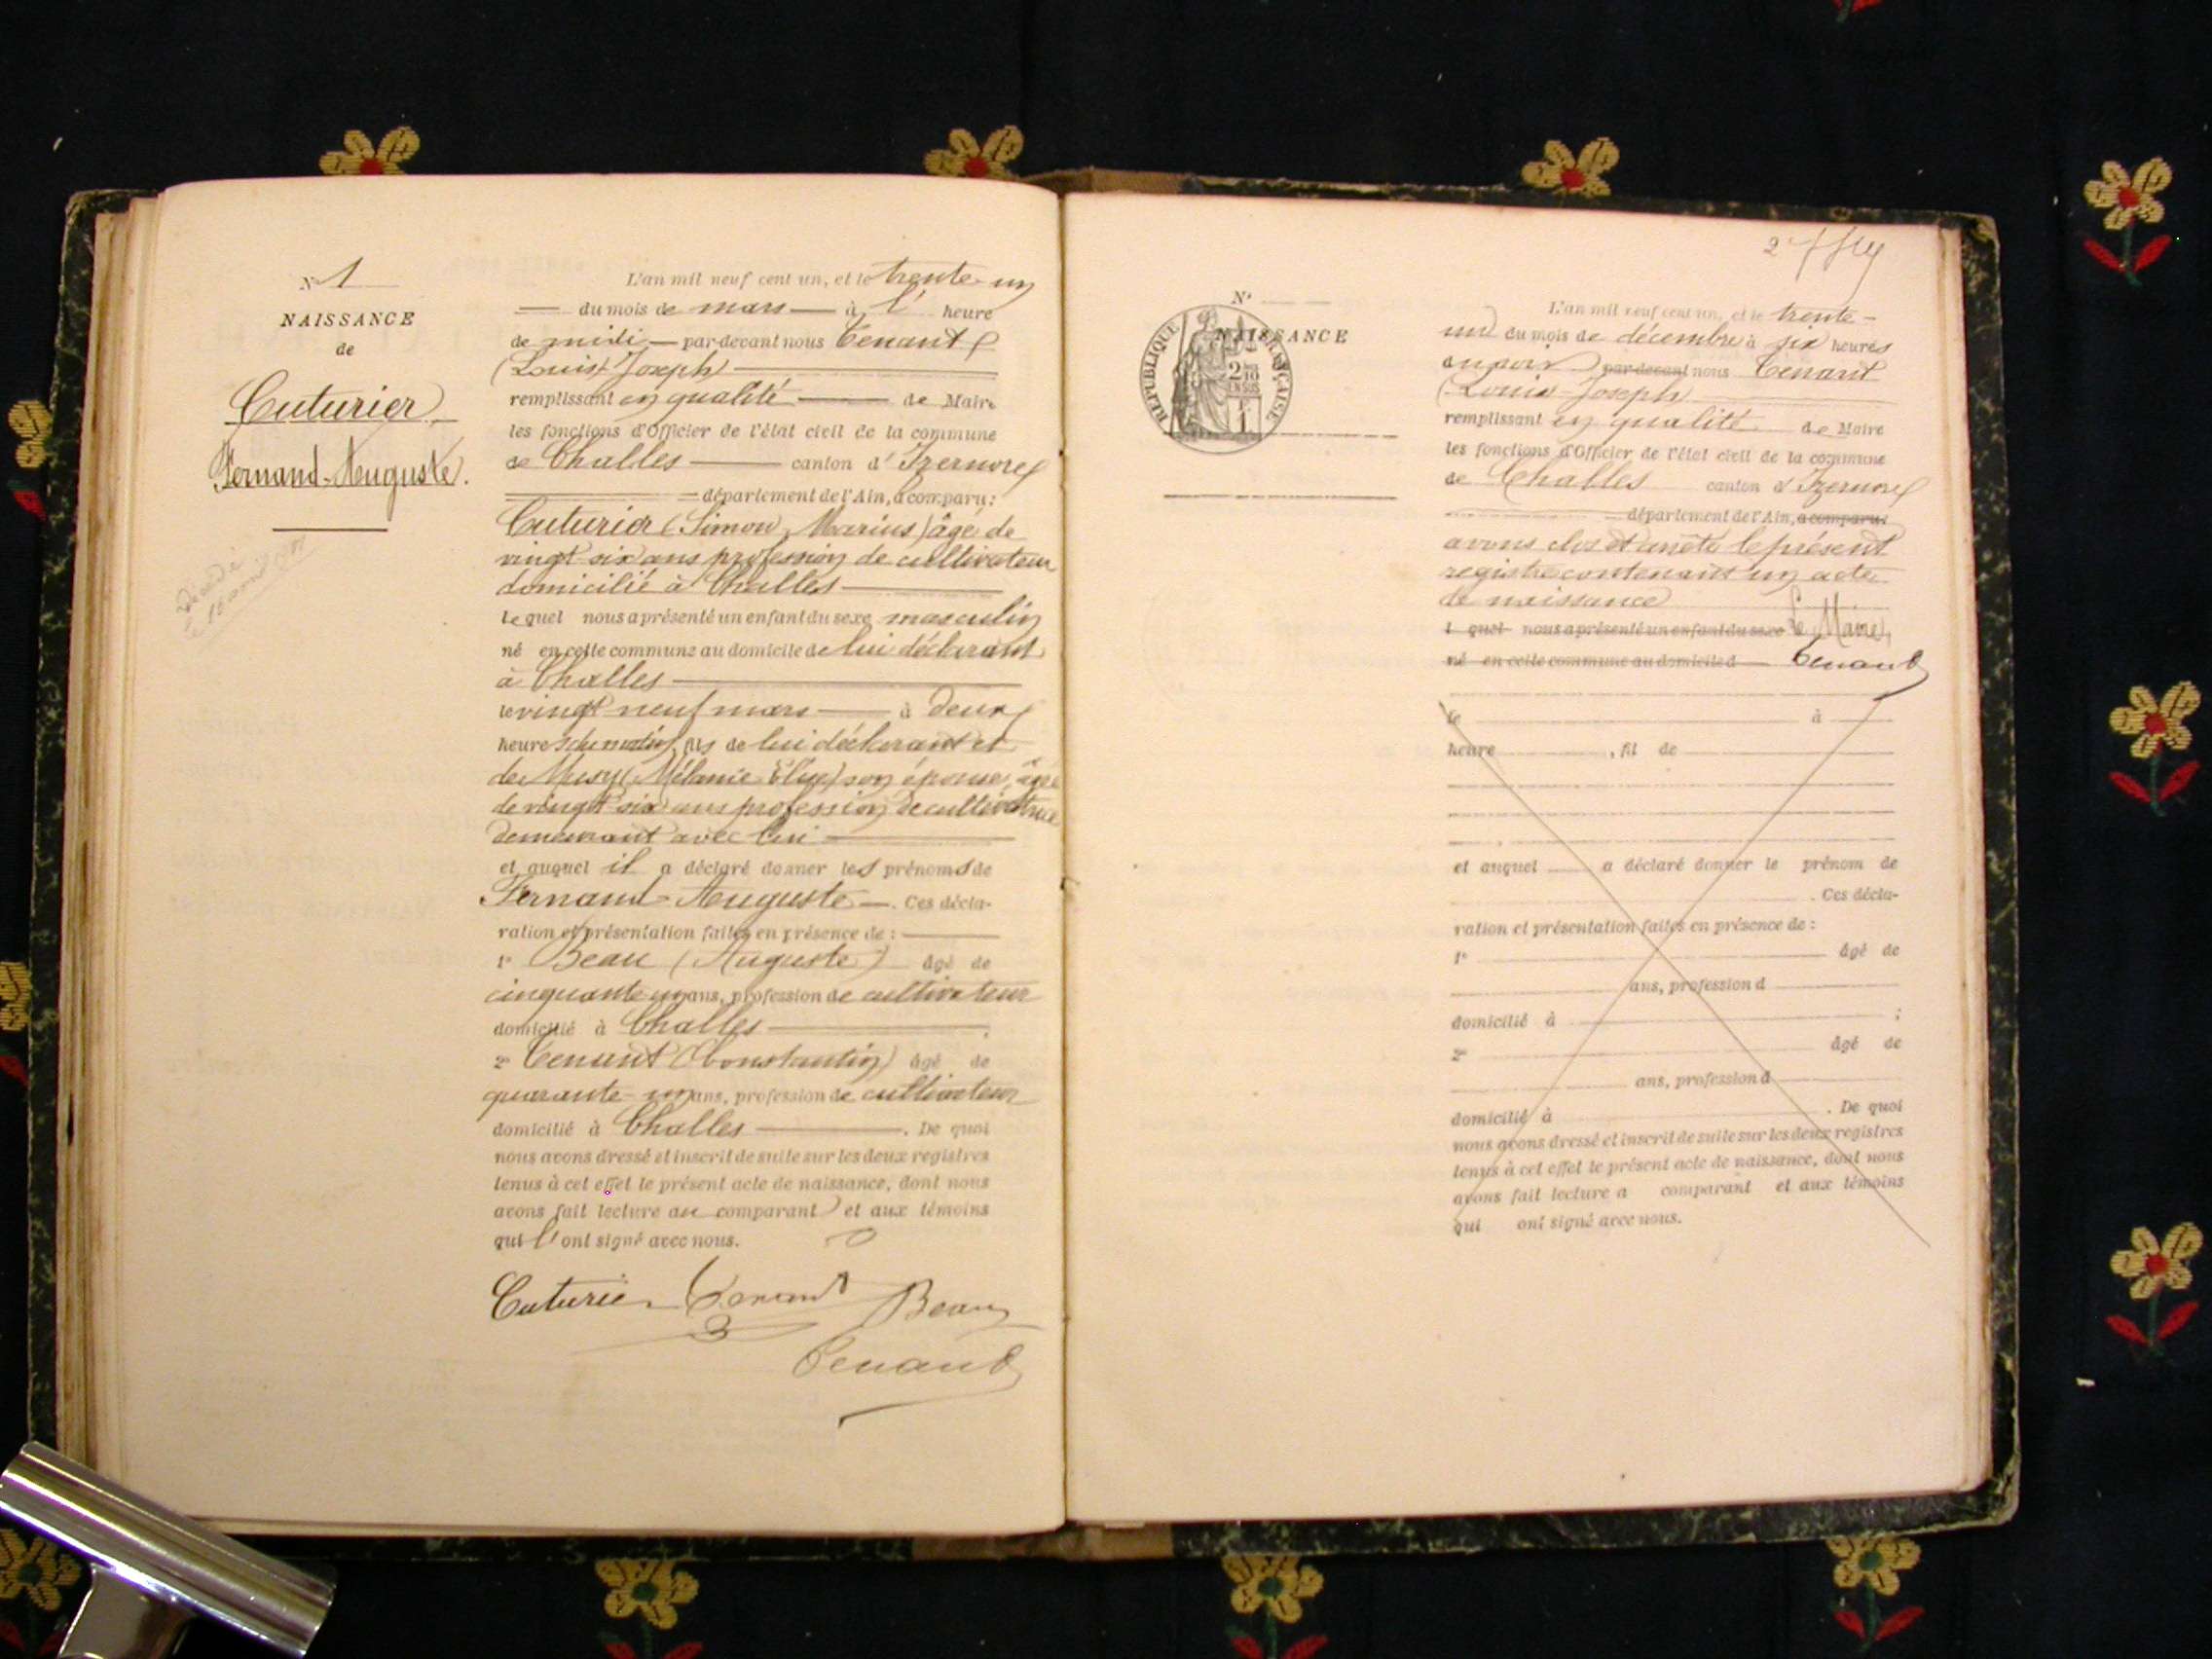 N° 1
NAISSANCE
de
Cuturier
Fernand-Auguste.
Décédé
L'an mil neuf cent un, et le trente-un
du mois de mars à l' heure
de midi par-devant nous Tenant
(Louis Joseph)
remplissant en qualité de Maire
les fonctions d'Officier de l'état civil de la commune
de Challes canton d'Izernore
département de l'Ain, a comparu :
Cuturier (Simon, Marius) âgé de
vingt-six ans profession de cultivateur
domicilié à Challes
lequel nous a présenté un enfant du sexe masculin
né en cette commune au domicile de lui déclarant
à Challes
le vingt neuf mars à deux
heures du matin, fils de lui déclarant et
de Musy (Mélanie ) son épouse, âgée
de vingt-six ans profession de cultivatrice
demeurant avec lui
et auquel il a déclaré donner les prénoms de
Fernand-Auguste. Ces décla-
ration et présentation faites en présence de :
1° Beau (Auguste) âgé de
cinquante-un ans, profession de cultivateur
domicilié à Challes ;
2° Tenant (Constantin) âgé de
quarante-un ans, profession de cultivateur
domicilié à Challes. De quoi
nous avons dressé et inscrit de suite sur les deux registres
tenus à cet effet le présent acte de naissance, dont nous
avons fait lecture au comparant et aux témoins
qui l'ont signé avec nous.
Cuturier Tenant Beau
Tenand
2
N°
NAISSANCE
RÉPUBLIQUE FRANÇAISE
L'an mil neuf cent un, et le trente-
un du mois de décembre à six heures
du soir par-devant nous Tenant
(Louis-Joseph)
remplissant en qualité de Maire
les fonctions d'Officier de l'état civil de la commune
de Challes canton d'Izernore
département de l'Ain, a comparu:
avons clos et arrêté le présent
registre contenant un acte
de naissance
l quel nous a présenté un enfant du sexe Le Maire,
né en cette commune au domicile d Tenand
le à
heure , fil de
et auquel a déclaré donner le prénom de
. Ces décla-
ration et présentation faites en présence de :
1° âgé de
ans, profession d
domicilié à ;
2° âgé de
ans, profession d
domicilié à . De quoi
nous avons dressé et inscrit de suite sur les deux registres
tenus à cet effet le présent acte de naissance, dont nous
avons fait lecture a comparant et aux témoins
qui ont signé avec nous.